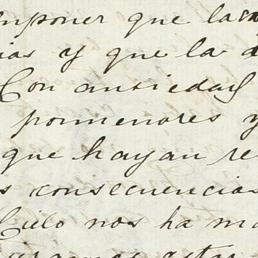 mponer que las
ias y que la d
Con antiedad
pormenores y
que hayan re
s consecuencias
Cielo nos ha m